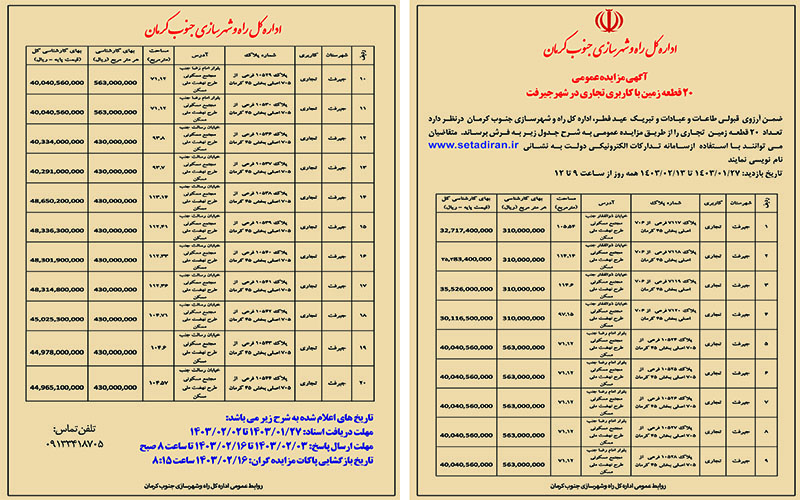 اداره کل راه و شهرسازی جنوب کرمان
آگهی مزایده عمومی
۲۰ قطعه زمین با کاربری تجاری در شهر جیرفت
ضمن آرزوی قبولی طاعات و عبادات و تبریک عید فطر، اداره کل راه و شهرسازی جنوب کرمان درنظر دارد
تعداد ۲۰ قطعه زمین تجاری را از طریق مزایده عمومی به شرح جدول زیر به فرش برساند. متقاضیان
می توانند با استفاده ازسامانه تدارکات الکترونیکی دولت به نشانی www.setadiran.ir
نام نویسی نمایند
تاریخ بازدید: ۱۴۰۳/۰۱/۲۷ تا ۱۴۰۳/۰۲/۱۳ همه روز از ساعت ۹ تا ۱۲
ردیف شهرستان کاربری شماره پلاک آدرس مساحت (مترمربع) بهای کارشناسی هر متر مربع (ریال) بهای کارشناسی کل (قیمت پایه - ریال)
۱ جیرفت تجاری پلاک ۷۱۱۷ فرعی از ۷۰۶ اصلی بخش ۴۵ کرمان خیابان ذوالفقار جنب مجتمع مسکونی طرح نهضت ملی مسکن ۱۰۵.۵۴ 310,000,000 32,717,400,000
۲ جیرفت تجاری پلاک ۷۱۱۸ فرعی از ۷۰۶ اصلی بخش ۴۵ کرمان خیابان ذوالفقار جنب مجتمع مسکونی طرح نهضت ملی مسکن 310,000,000
۳ جیرفت تجاری پلاک ۷۱۱۹ فرعی از ۷۰۶ اصلی بخش ۴۵ کرمان خیابان ذوالفقار جنب مجتمع مسکونی طرح نهضت ملی مسکن ۱۱۴.۶ 310,000,000 35,526,000,000
۴ جیرفت تجاری پلاک ۷۱۲۰ فرعی از ۷۰۶ اصلی بخش ۴۵ کرمان خیابان ذوالفقار جنب مجتمع مسکونی طرح نهضت ملی مسکن ۹۷.۱۵ 310,000,000 30,116,500,000
۵ جیرفت تجاری پلاک ۱۰۵۲۴ فرعی از ۷۰۵ اصلی بخش ۴۵ کرمان بلوار امام رضا جنب مجتمع مسکونی طرح نهضت ملی مسکن ۷۱.۱۲ 563,000,000 40,040,560,000
۶ جیرفت تجاری پلاک ۱۰۵۲۵ فرعی از ۷۰۵ اصلی بخش ۴۵ کرمان بلوار امام رضا جنب مجتمع مسکونی طرح نهضت ملی مسکن ۷۱.۱۲ 563,000,000 40,040,560,000
۷ جیرفت تجاری پلاک ۱۰۵۲۶ فرعی از ۷۰۵ اصلی بخش ۴۵ کرمان بلوار امام رضا جنب مجتمع مسکونی طرح نهضت ملی مسکن ۷۱.۱۲ 563,000,000 40,040,560,000
۸ جیرفت تجاری پلاک ۱۰۵۲۷ فرعی از ۷۰۵ اصلی بخش ۴۵ کرمان بلوار امام رضا جنب مجتمع مسکونی طرح نهضت ملی مسکن ۷۱.۱۲ 563,000,000 40,040,560,000
۹ جیرفت تجاری پلاک ۱۰۵۲۸ فرعی از ۷۰۵ اصلی بخش ۴۵ کرمان بلوار امام رضا جنب مجتمع مسکونی طرح نهضت ملی مسکن ۷۱.۱۲ 563,000,000 40,040,560,000
روابط عمومی اداره کل راه و شهرسازی جنوب کرمان
اداره کل راه و شهرسازی جنوب کرمان
ردیف شهرستان کاربری شماره پلاک آدرس مساحت (مترمربع) بهای کارشناسی هر متر مربع (ریال) بهای کارشناسی کل (قیمت پایه - ریال)
۱۰ جیرفت تجاری پلاک ۱۰۵۲۹ فرعی از ۷۰۵ اصلی بخش ۴۵ کرمان بلوار امام رضا جنب مجتمع مسکونی طرح نهضت ملی مسکن ۷۱.۱۲ 563,000,000 40,040,560,000
۱۱ جیرفت تجاری پلاک ۱۰۵۳۰ فرعی از ۷۰۵ اصلی بخش ۴۵ کرمان بلوار امام رضا جنب مجتمع مسکونی طرح نهضت ملی مسکن ۷۱.۱۲ 563,000,000 40,040,560,000
۱۲ جیرفت تجاری پلاک ۱۰۵۳۶ فرعی از ۷۰۵ اصلی بخش ۴۵ کرمان خیابان رسالت جنب مجتمع مسکونی طرح نهضت ملی مسکن ۹۳.۸ 430,000,000 40,334,000,000
۱۳ جیرفت تجاری پلاک ۱۰۵۳۷ فرعی از ۷۰۵ اصلی بخش ۴۵ کرمان خیابان رسالت جنب مجتمع مسکونی طرح نهضت ملی مسکن ۹۳.۷ 430,000,000 40,291,000,000
۱۴ جیرفت تجاری پلاک ۱۰۵۳۸ فرعی از ۷۰۵ اصلی بخش ۴۵ کرمان خیابان رسالت جنب مجتمع مسکونی طرح نهضت ملی مسکن ۱۱۳.۱۴ 430,000,000 48,650,200,000
۱۵ جیرفت تجاری پلاک ۱۰۵۳۹ فرعی از ۷۰۵ اصلی بخش ۴۵ کرمان خیابان رسالت جنب مجتمع مسکونی طرح نهضت ملی مسکن ۱۱۲.۴۱ 430,000,000 48,336,300,000
۱۶ جیرفت تجاری پلاک ۱۰۵۴۰ فرعی از ۷۰۵ اصلی بخش ۴۵ کرمان خیابان رسالت جنب مجتمع مسکونی طرح نهضت ملی مسکن ۱۱۲.۳۳ 430,000,000 48,301,900,000
۱۷ جیرفت تجاری پلاک ۱۰۵۴۱ فرعی از ۷۰۵ اصلی بخش ۴۵ کرمان خیابان رسالت جنب مجتمع مسکونی طرح نهضت ملی مسکن ۱۱۲.۳۶ 430,000,000 48,314,800,000
۱۸ جیرفت تجاری پلاک ۱۰۵۴۲ فرعی از ۷۰۵ اصلی بخش ۴۵ کرمان خیابان رسالت جنب مجتمع مسکونی طرح نهضت ملی مسکن ۱۰۴.۷۱ 430,000,000 45,025,300,000
۱۹ جیرفت تجاری پلاک ۱۰۵۴۳ فرعی از ۷۰۵ اصلی بخش ۴۵ کرمان خیابان رسالت جنب مجتمع مسکونی طرح نهضت ملی مسکن ۱۰۴.۶ 430,000,000 44,978,000,000
۲۰ جیرفت تجاری پلاک ۱۰۵۴۴ فرعی از ۷۰۵ اصلی بخش ۴۵ کرمان خیابان رسالت جنب مجتمع مسکونی طرح نهضت ملی مسکن ۱۰۴.۵۷ 430,000,000 44,965,100,000
تاریخ های اعلام شده به شرح زیر می باشد:
مهلت دریافت اسناد: ۱۴۰۳/۰۱/۲۷ تا ۱۴۰۳/۰۲/۰۲
مهلت ارسال پاسخ: ۱۴۰۳/۰۲/۰۳ تا ۱۴۰۳/۰۲/۱۶ تا ساعت ۸ صبح
تاریخ بازگشایی پاکات مزایده گران: ۱۴۰۳/۰۲/۱۶ ساعت ۸:۱۵
تلفن تماس:
۰۹۱۳۳۴۱۸۷۰۵
روابط عمومی اداره کل راه و شهرسازی جنوب کرمان